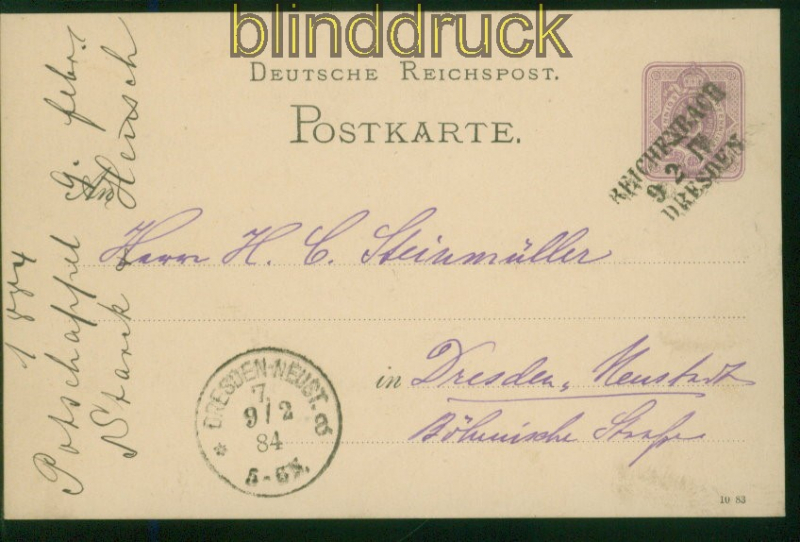 blinddruck
DEUTSCHE REICHSPOST.
POSTKARTE.
REICHENBACH
9 2 IV
DRESDEN
An
Herrn H. C. Steinmüller
in Dresden, Neustadt
Böhmische Straße
DRESDEN-NEUST. 8
7.
9/2
84
5-6N.
10 83
1884
Potschappel 9. febr.
Starck & Hensch